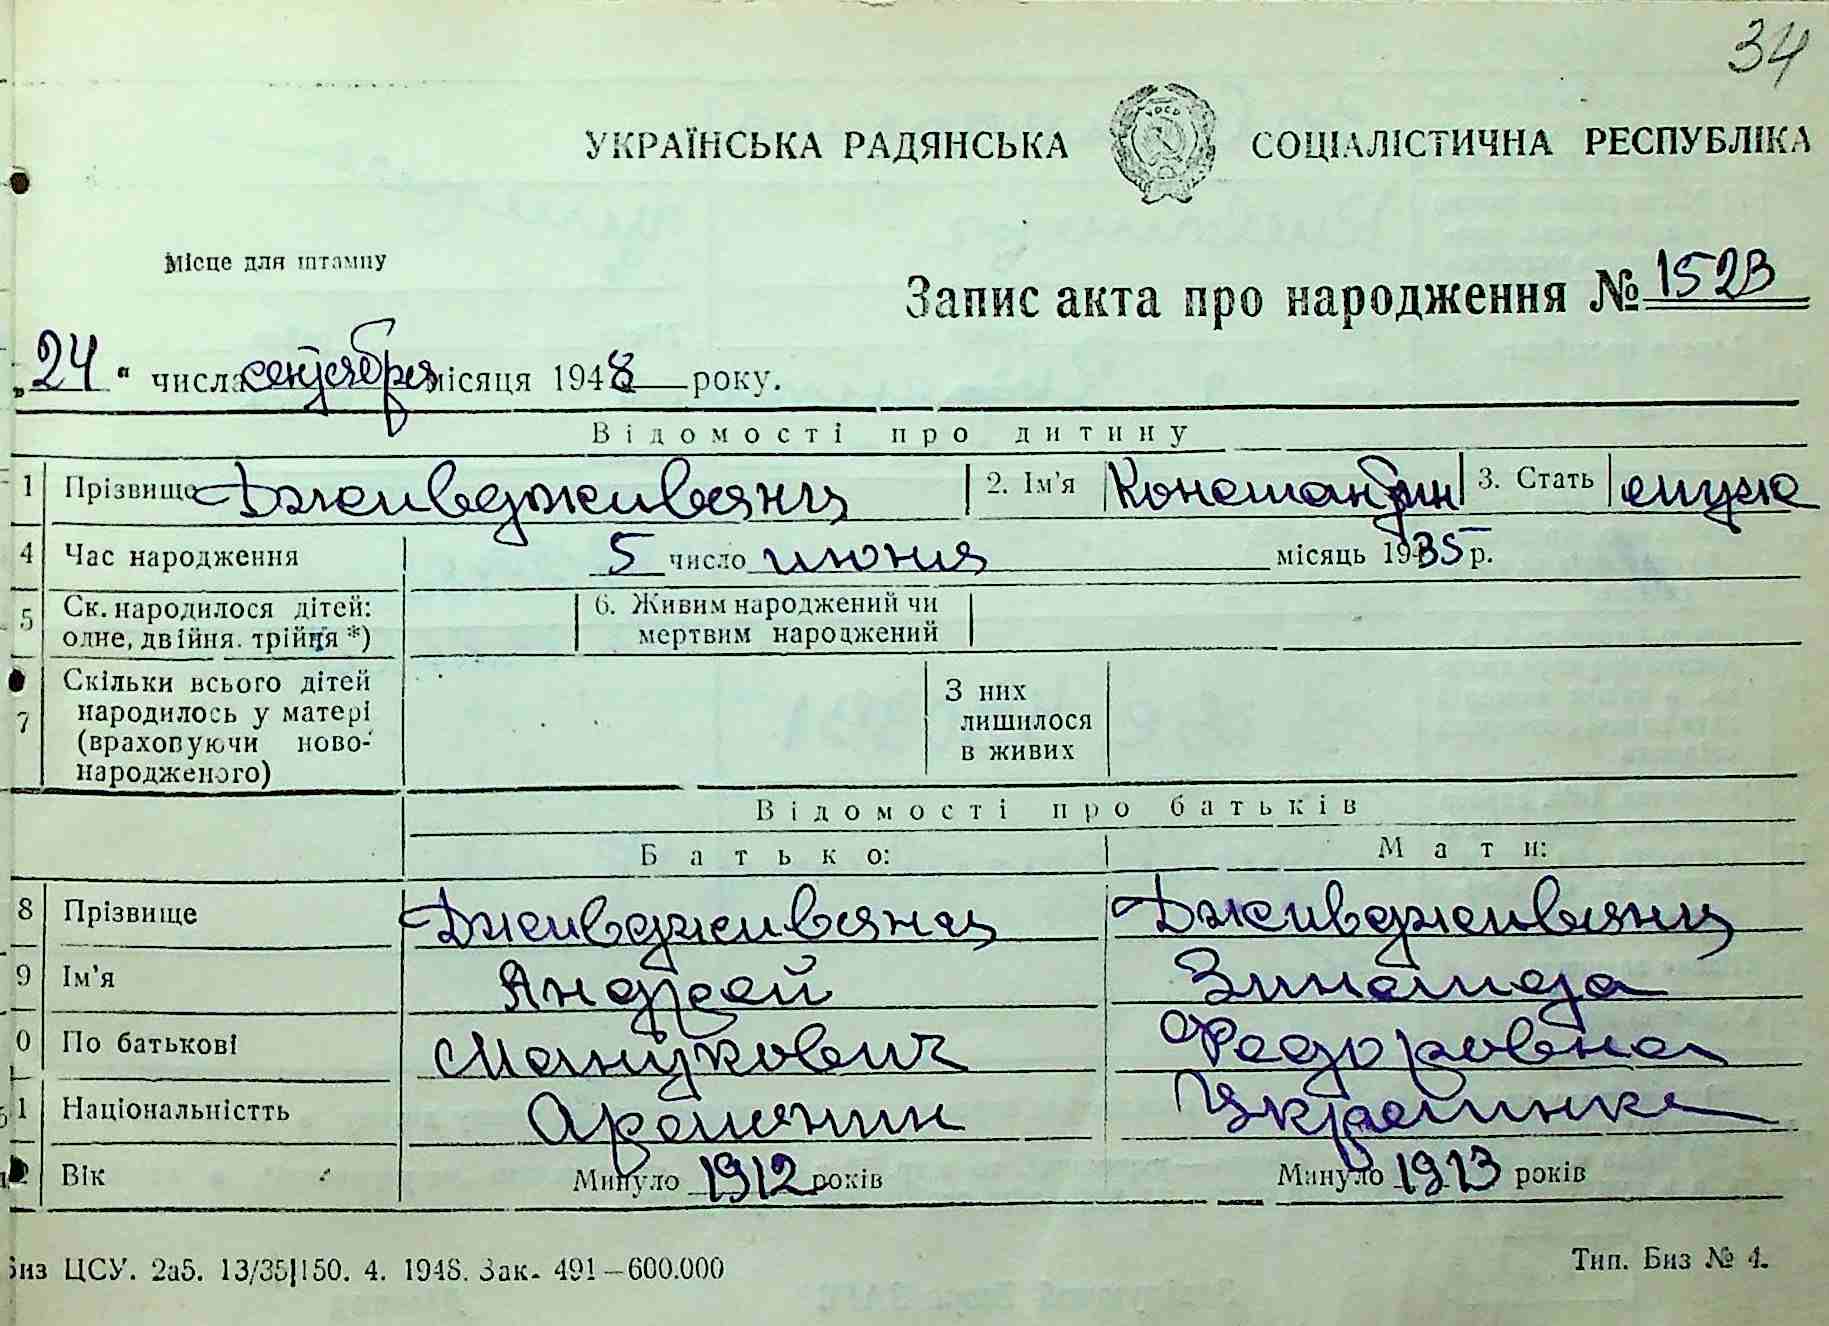 34
УКРАЇНСЬКА РАДЯНСЬКА СОЦІАЛІСТИЧНА РЕСПУБЛІКА
УРСР
Місце для штампу
Запис акта про народження № 1523
„24“ числа сентября місяця 1948 року.
Відомості про дитину
1 Прізвище Дживдживянц 2. Ім'я Константин 3. Стать мужс
4 Час народження 5 число июня місяць 1935 р.
5 Ск. народилося дітей: 6. Живим народжений чи
одне, двійня. трійня *) мертвим народжений
Скільки всього дітей З них
7 народилось у матері лишилося
(враховуючи ново- в живих
народженого)
Відомості про батьків
Батько: Мати:
8 Прізвище Дживдживянц Дживдживянц
9 Ім'я Андрей Зинаида
0 По батькові Манукович Федоровна
1 Національністть Армянин Украинка
2 Вік Минуло 1912 років Минуло 1913 років
Биз ЦСУ. 2а5. 13/35|150. 4. 1948. Зак. 491—600.000 Тип. Биз № 4.